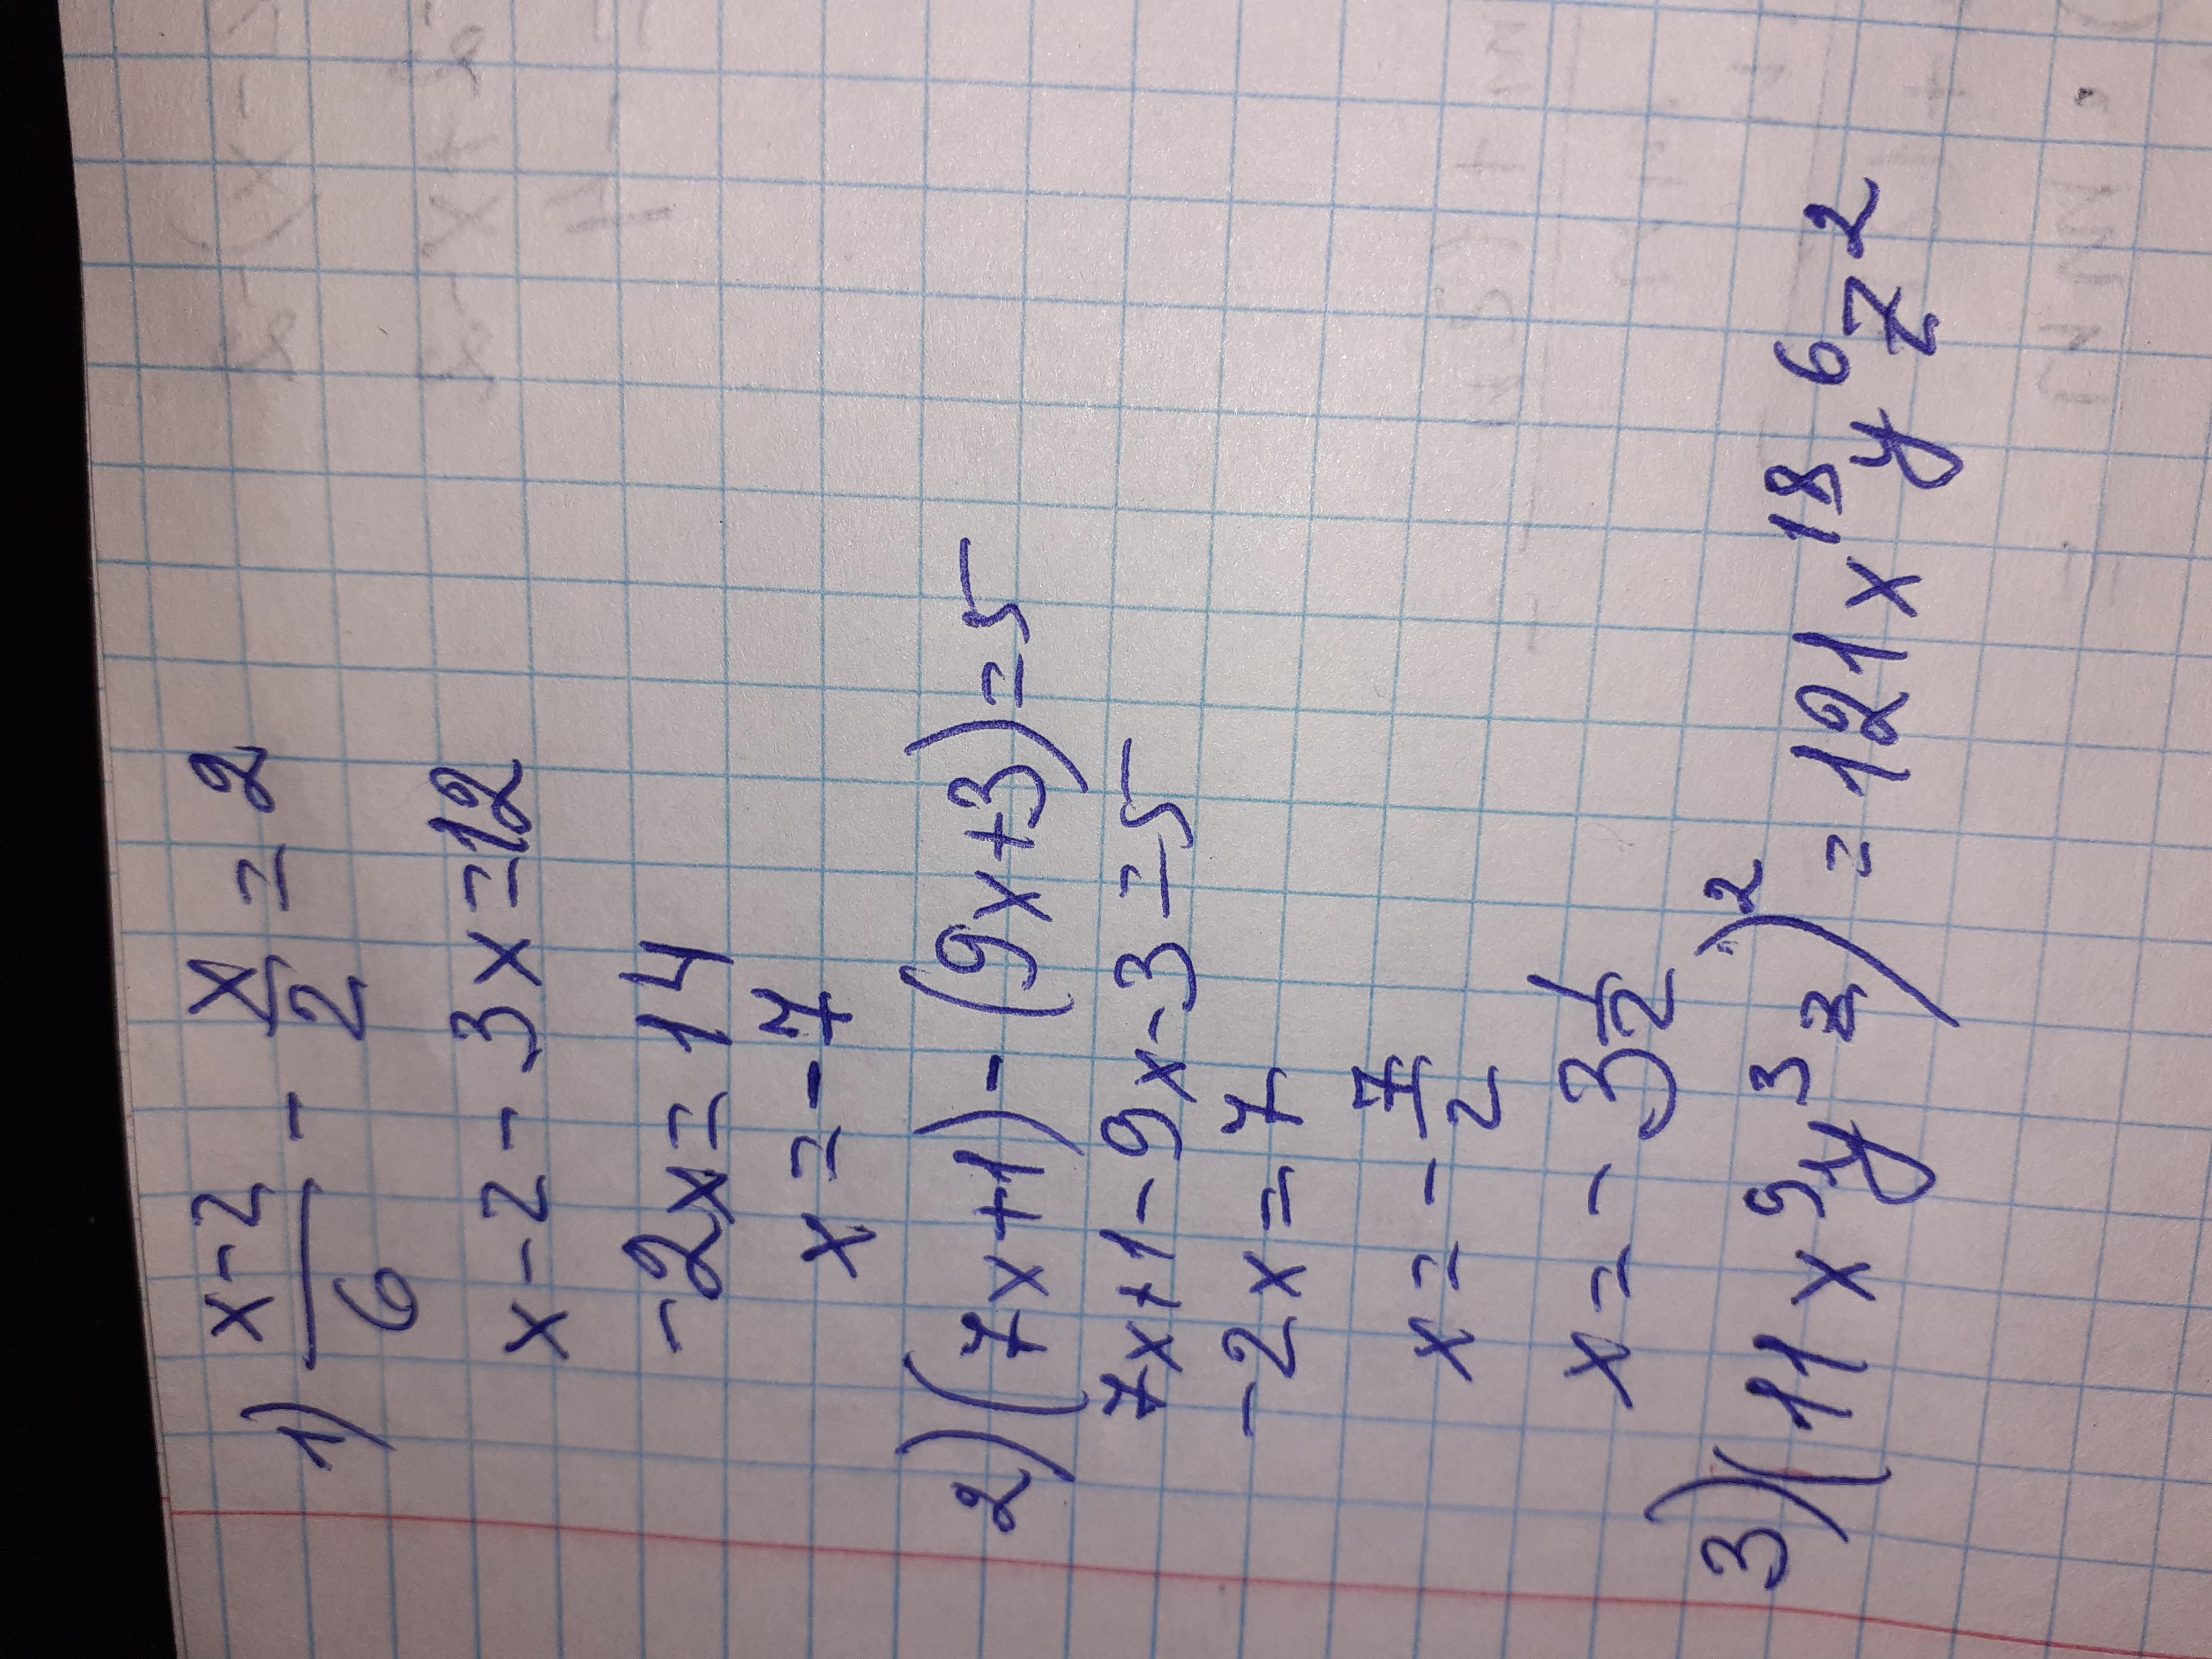 1) (x-2)/6 - x/2 = 2
x-2-3x=12
-2x=14
x=-7
2) (7x+1)-(9x+3)=5
7x+1-9x-3=5
-2x=7
x=-7/2
x=-3 1/2
3) (11x⁹y³z)²=121x¹⁸y⁶z²